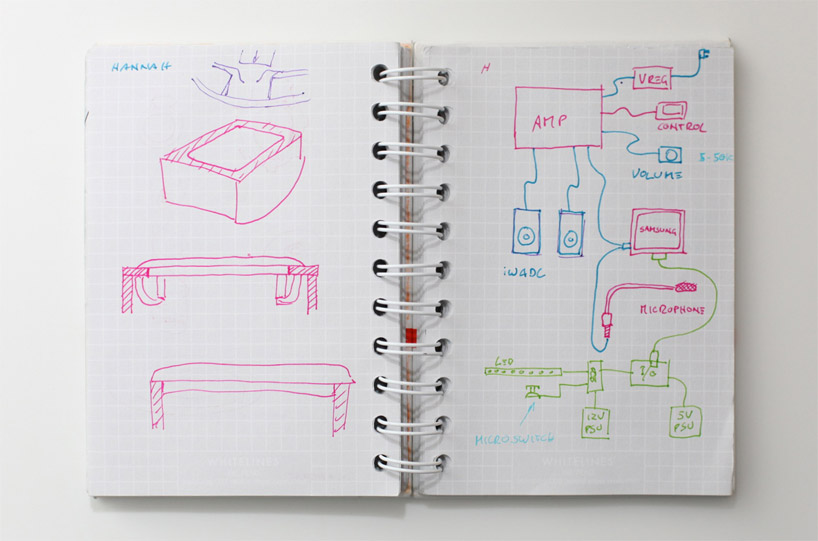 HANNAH
H
VREG
AMP
CONTROL
5-50K
VOLUME
SAMSUNG
iWADC
MICROPHONE
LED
I/O
12V
PSU
5V
PSU
MICROSWITCH